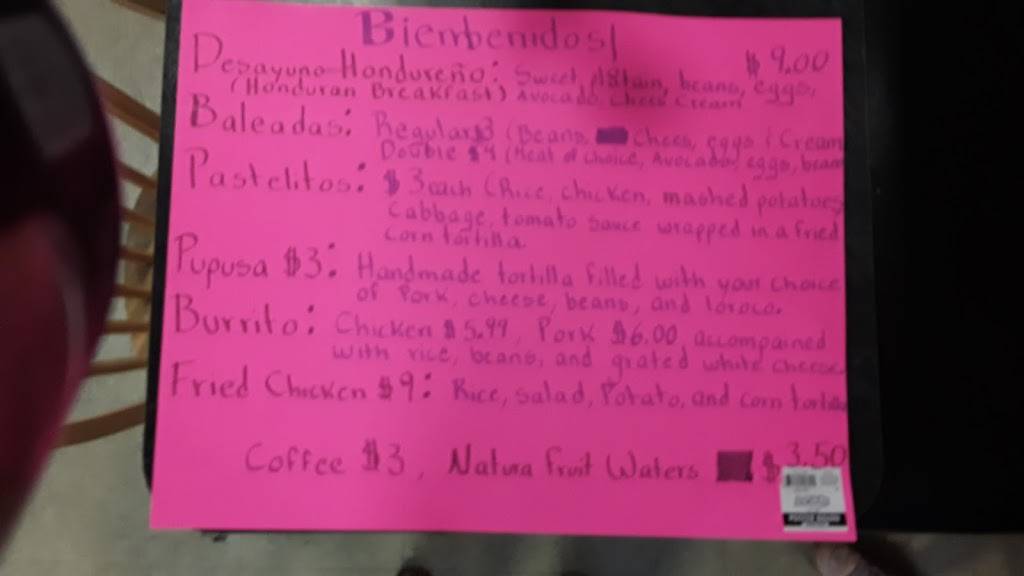 Bienbenidos!
Desayuno Hondureño: Sweet, Platain, beans, eggs, $9.00
(Honduran Breakfast) Avocado, Chees Cream
Baleadas: Regular $3 (Beans, Chees, eggs & Cream
Double $4 (Meat of choice, Avocado, eggs, beans
Pastelitos: $3 each (Rice, chicken, mashed potatoes
cabbage, tomato sauce wrapped in a fried
corn tortilla.
Pupusa $3: Handmade tortilla filled with your choice
of Pork, cheese, beans, and loroco.
Burrito: Chicken $5.99, Pork $6.00, accompained
with rice, beans, and grated white cheese.
Fried Chicken $9: Rice, salad, Potato, and corn tortilla
Coffee $3, Natura Fruit Waters $3.50